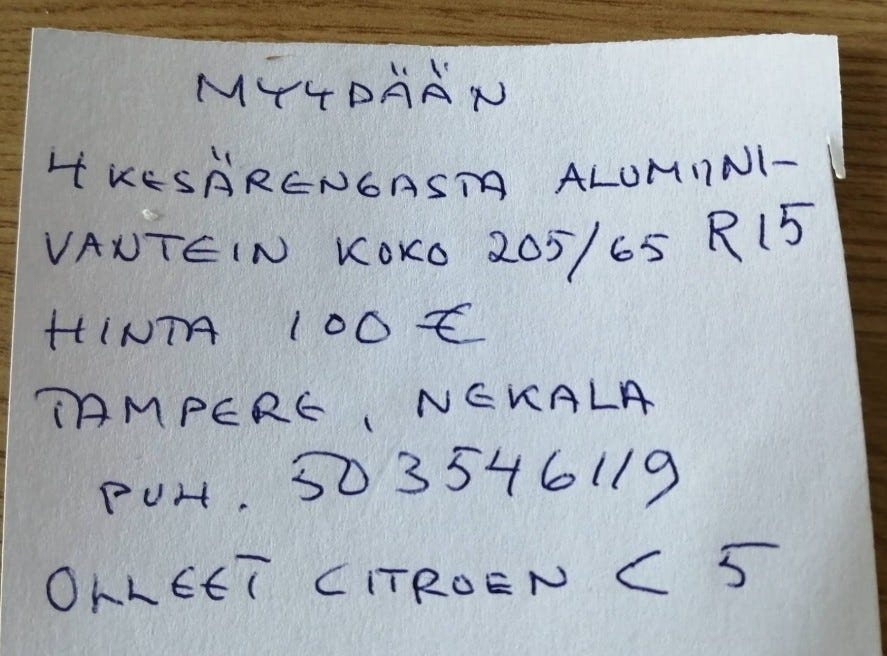 MYYDÄÄN
4 KESÄRENGASTA ALUMIINI-
VANTEIN KOKO 205/65 R15
HINTA 100 €
TAMPERE, NEKALA
PUH. 503546119
OLLEET CITROEN C 5